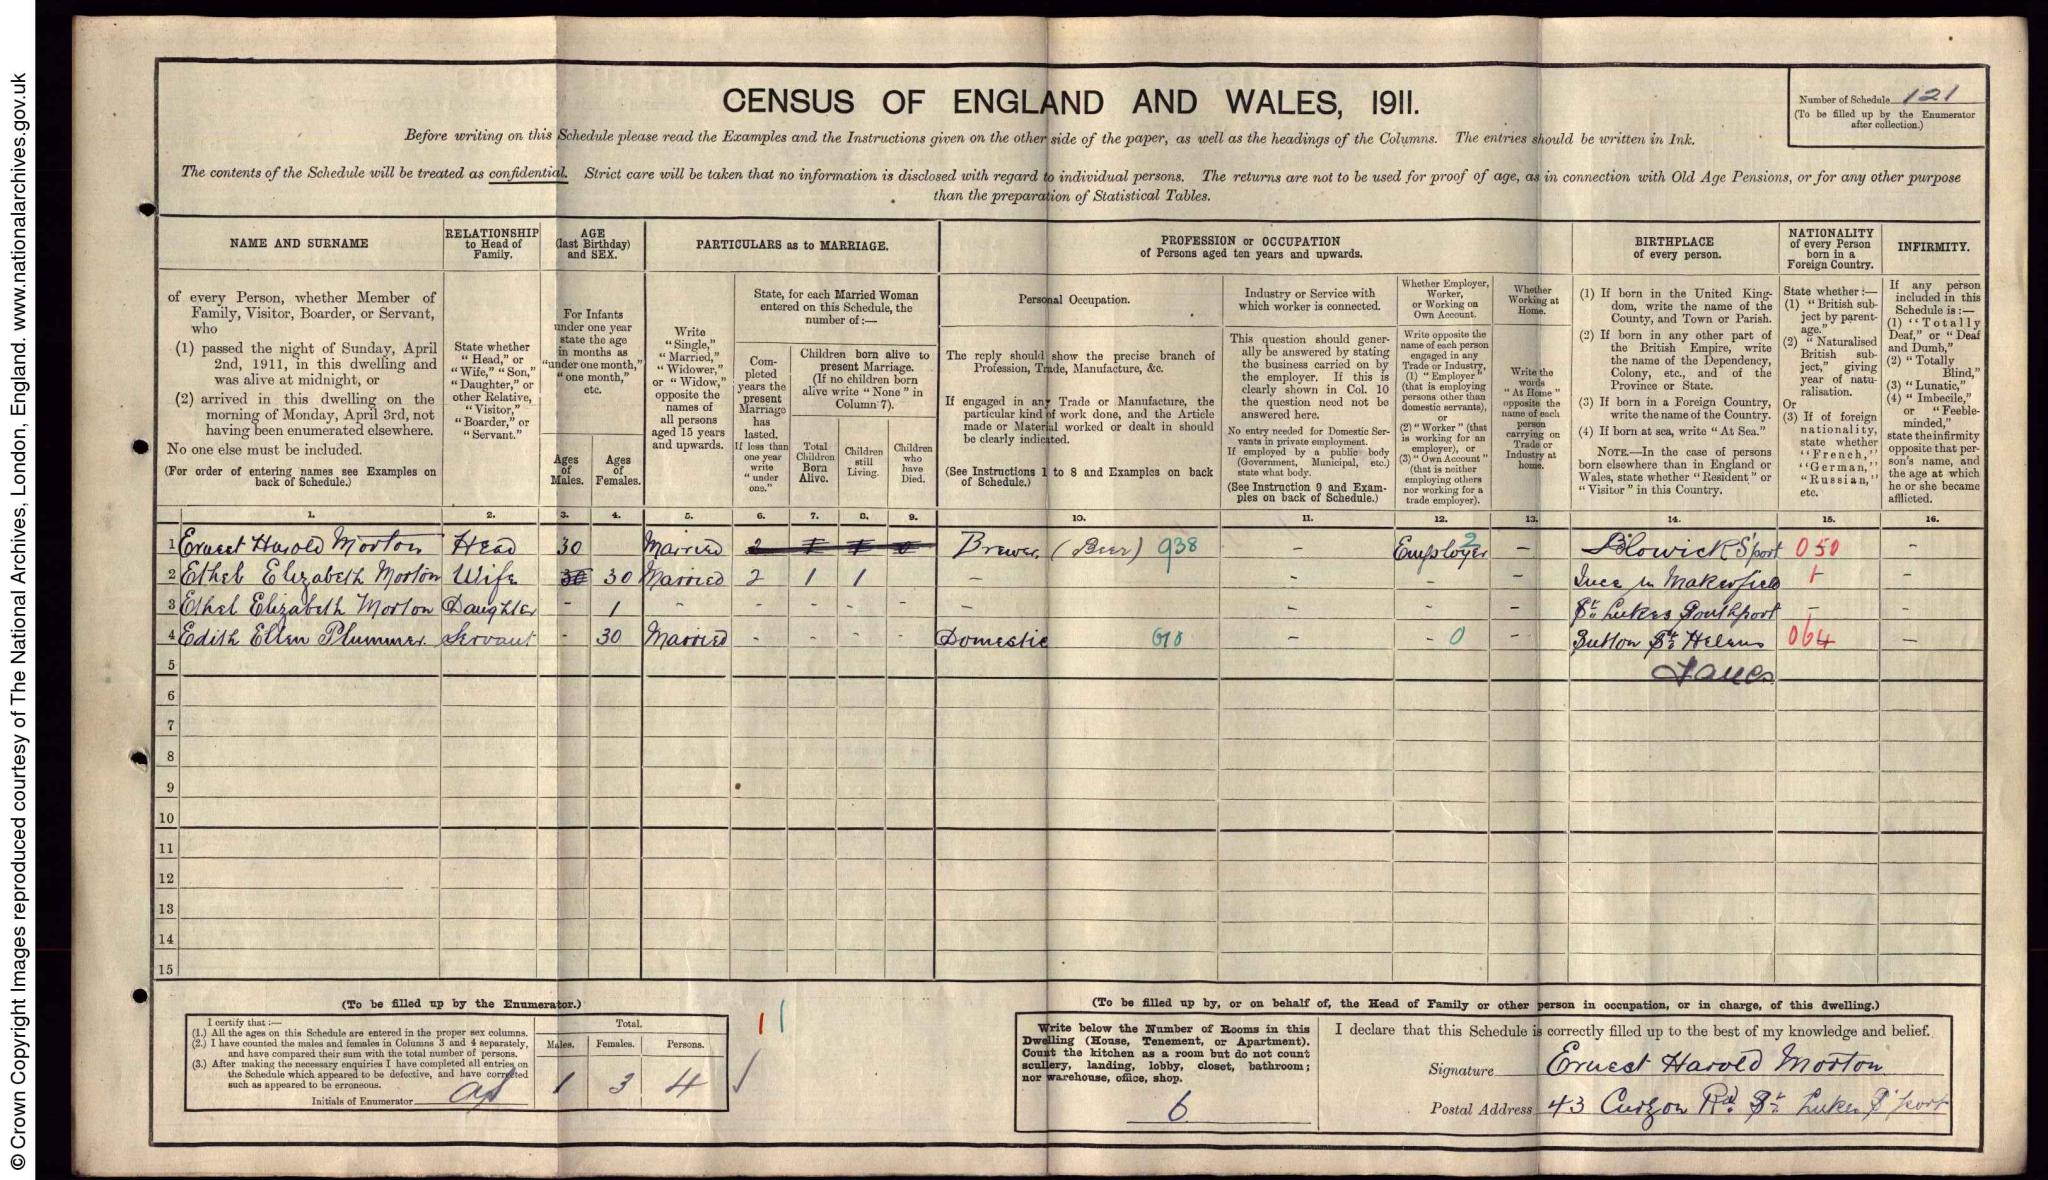 © Crown Copyright Images reproduced courtesy of The National Archives, London, England. www.nationalarchives.gov.uk
CENSUS OF ENGLAND AND WALES, 1911.
Number of Schedule 121
(To be filled up by the Enumerator
after collection.)
Before writing on this Schedule please read the Examples and the Instructions given on the other side of the paper, as well as the headings of the Columns. The entries should be written in Ink.
The contents of the Schedule will be treated as confidential. Strict care will be taken that no information is disclosed with regard to individual persons. The returns are not to be used for proof of age, as in connection with Old Age Pensions, or for any other purpose
than the preparation of Statistical Tables.
NAME AND SURNAME
of every Person, whether Member of
Family, Visitor, Boarder, or Servant,
who
(1) passed the night of Sunday, April
2nd, 1911, in this dwelling and
was alive at midnight, or
(2) arrived in this dwelling on the
morning of Monday, April 3rd, not
having been enumerated elsewhere.
No one else must be included.
(For order of entering names see Examples on
back of Schedule.)
RELATIONSHIP
to Head of
Family.
State whether
"Head," or
"Wife," "Son,"
"Daughter," or
other Relative,
"Visitor,"
"Boarder," or
"Servant."
AGE
(last Birthday)
and SEX.
For Infants
under one year
state the age
in months as
"under one month,"
"one month,"
etc.
Ages
of
Males.
Ages
of
Females.
PARTICULARS as to MARRIAGE.
Write
"Single,"
"Married,"
"Widower,"
or "Widow,"
opposite the
names of
all persons
aged 15 years
and upwards.
State, for each Married Woman
entered on this Schedule, the
number of:—
Com-
pleted
years the
present
Marriage
has
lasted.
If less than
one year
write
"under
one."
Children born alive to
present Marriage.
(If no children born
alive write "None" in
Column 7).
Total
Children
Born
Alive.
Children
still
Living.
Children
who
have
Died.
PROFESSION or OCCUPATION
of Persons aged ten years and upwards.
Personal Occupation.
The reply should show the precise branch of
Profession, Trade, Manufacture, &c.
If engaged in any Trade or Manufacture, the
particular kind of work done, and the Article
made or Material worked or dealt in should
be clearly indicated.
(See Instructions 1 to 8 and Examples on back
of Schedule.)
Industry or Service with
which worker is connected.
This question should gener-
ally be answered by stating
the business carried on by
the employer. If this is
clearly shown in Col. 10
the question need not be
answered here.
No entry needed for Domestic Ser-
vants in private employment.
If employed by a public body
(Government, Municipal, etc.)
state what body.
(See Instruction 9 and Exam-
ples on back of Schedule.)
Whether Employer,
Worker,
or Working on
Own Account.
Write opposite the
name of each person
engaged in any
Trade or Industry,
(1) "Employer"
(that is employing
persons other than
domestic servants),
or
(2) "Worker" (that
is working for an
employer), or
(3) "Own Account"
(that is neither
employing others
nor working for a
trade employer).
Whether
Working at
Home.
Write the
words
"At Home"
opposite the
name of each
person
carrying on
Trade or
Industry at
home.
BIRTHPLACE
of every person.
(1) If born in the United King-
dom, write the name of the
County, and Town or Parish.
(2) If born in any other part of
the British Empire, write
the name of the Dependency,
Colony, etc., and of the
Province or State.
(3) If born in a Foreign Country,
write the name of the Country.
(4) If born at sea, write "At Sea."
NOTE.—In the case of persons
born elsewhere than in England or
Wales, state whether "Resident" or
"Visitor" in this Country.
NATIONALITY
of every Person
born in a
Foreign Country.
State whether:—
(1) "British sub-
ject by parent-
age."
(2) "Naturalised
British sub-
ject," giving
year of natu-
ralisation.
Or
(3) If of foreign
nationality,
state whether
"French,"
"German,"
"Russian,"
etc.
INFIRMITY.
If any person
included in this
Schedule is:—
(1) "Totally
Deaf," or "Deaf
and Dumb,"
(2) "Totally
Blind,"
(3) "Lunatic,"
(4) "Imbecile,"
or "Feeble-
minded,"
state the infirmity
opposite that per-
son's name, and
the age at which
he or she became
afflicted.
1. 2. 3. 4. 5. 6. 7. 8. 9. 10. 11. 12. 13. 14. 15. 16.
1 Ernest Harold Morton Head 30 Married 2 1 1 0 Brewer (Beer) 938 – Employer 2 – Blowick S'port 050 –
2 Ethel Elizabeth Morton Wife 30 30 Married 2 1 1 – – – – Ince in Makerfield –
3 Ethel Elizabeth Morton Daughter – 1 - - - - - – – - – St Lukes Southport – –
4 Edith Ellen Plummer Servant - 30 Married - - - - Domestic – - 0 – Sutton St Helens 064 –
5 Lancs
6
7
8
9
10
11
12
13
14
15
(To be filled up by the Enumerator.)
I certify that:—
(1.) All the ages on this Schedule are entered in the proper sex columns.
(2.) I have counted the males and females in Columns 3 and 4 separately,
and have compared their sum with the total number of persons.
(3.) After making the necessary enquiries I have completed all entries on
the Schedule which appeared to be defective, and have corrected
such as appeared to be erroneous.
Initials of Enumerator
Total.
Males. Females. Persons.
1 3 4
(To be filled up by, or on behalf of, the Head of Family or other person in occupation, or in charge, of this dwelling.)
Write below the Number of Rooms in this
Dwelling (House, Tenement, or Apartment).
Count the kitchen as a room but do not count
scullery, landing, lobby, closet, bathroom;
nor warehouse, office, shop.
6
I declare that this Schedule is correctly filled up to the best of my knowledge and belief.
Signature Ernest Harold Morton
Postal Address 43 Curzon Rd. St. Lukes S'port